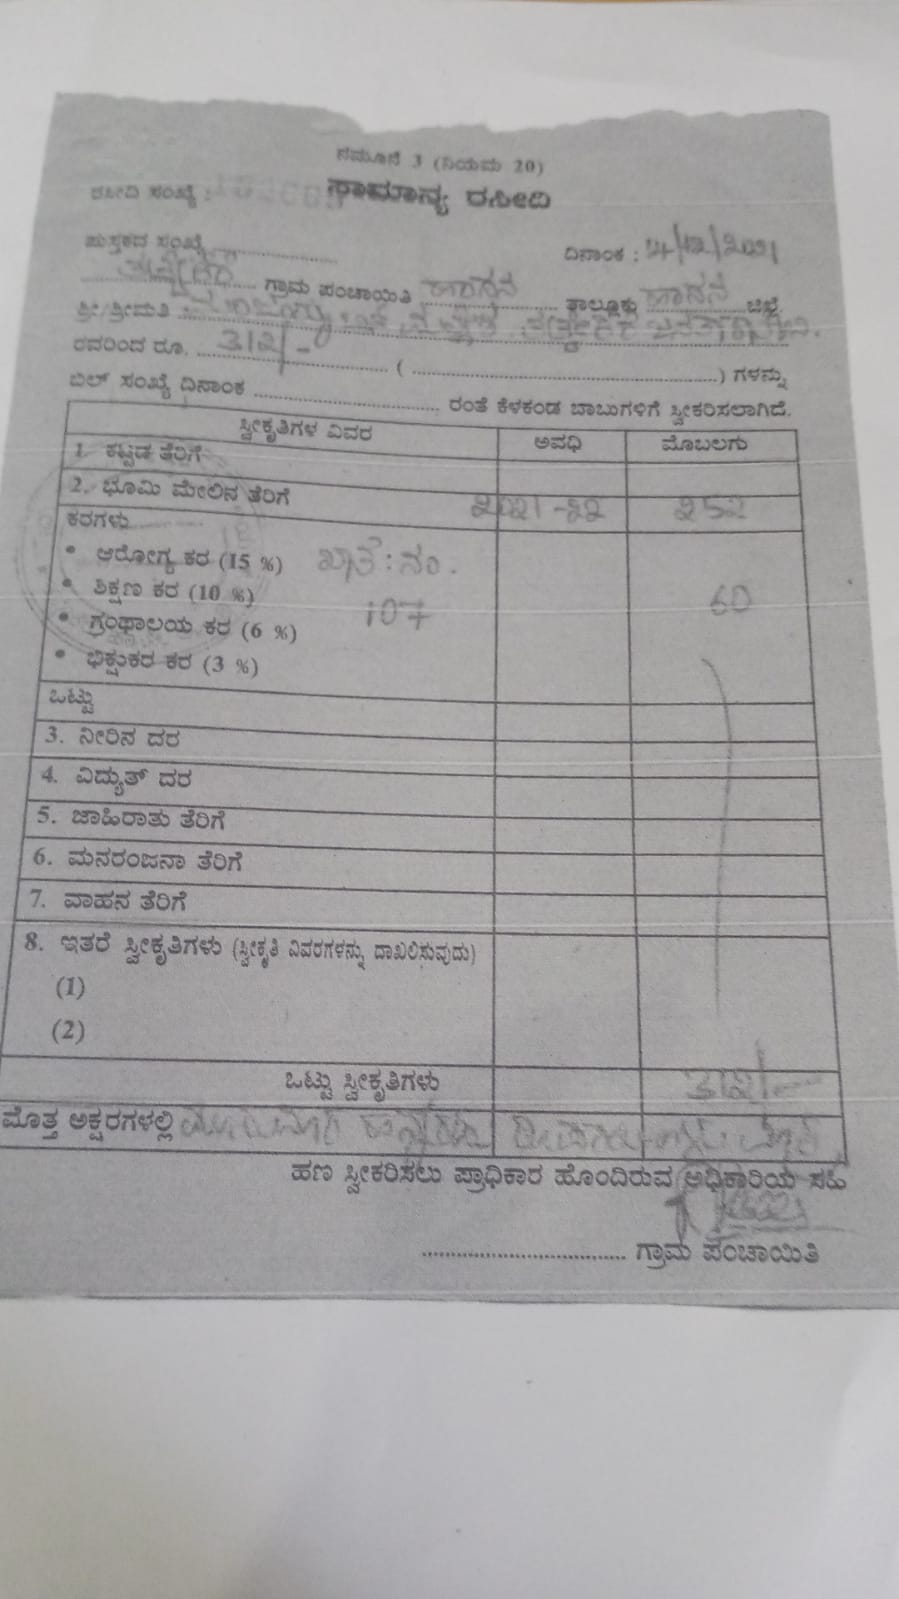 ನಮೂನೆ 3 (ನಿಯಮ 20)
ಸಾಮಾನ್ಯ ರಸೀದಿ
ರಸೀದಿ ಸಂಖ್ಯೆ :
ಪುಸ್ತಕದ ಸಂಖ್ಯೆ ............ ದಿನಾಂಕ : 4/12/2021
ಗ್ರಾಮ ಪಂಚಾಯಿತಿ ಹಾಸನ ತಾಲ್ಲೂಕು ಹಾಸನ ಜಿಲ್ಲೆ.
ಶ್ರೀ/ಶ್ರೀಮತಿ :
ರವರಿಂದ ರೂ. 312/- (............) ಗಳನ್ನು
ಬಿಲ್ ಸಂಖ್ಯೆ ದಿನಾಂಕ ............ ರಂತೆ ಕೆಳಕಂಡ ಬಾಬುಗಳಿಗೆ ಸ್ವೀಕರಿಸಲಾಗಿದೆ.
ಸ್ವೀಕೃತಿಗಳ ವಿವರ ಅವಧಿ ಮೊಬಲಗು
1. ಕಟ್ಟಡ ತೆರಿಗೆ
2. ಭೂಮಿ ಮೇಲಿನ ತೆರಿಗೆ 2021-22 252
ಕರಗಳು
• ಆರೋಗ್ಯ ಕರ (15 %) ಖಾತೆ: ನಂ.
• ಶಿಕ್ಷಣ ಕರ (10 %) 60
• ಗ್ರಂಥಾಲಯ ಕರ (6 %) 107
• ಭಿಕ್ಷುಕರ ಕರ (3 %)
ಒಟ್ಟು
3. ನೀರಿನ ದರ
4. ವಿದ್ಯುತ್ ದರ
5. ಜಾಹಿರಾತು ತೆರಿಗೆ
6. ಮನರಂಜನಾ ತೆರಿಗೆ
7. ವಾಹನ ತೆರಿಗೆ
8. ಇತರೆ ಸ್ವೀಕೃತಿಗಳು (ಸ್ವೀಕೃತಿ ವಿವರಗಳನ್ನು ದಾಖಲಿಸುವುದು)
(1)
(2)
ಒಟ್ಟು ಸ್ವೀಕೃತಿಗಳು 312/-
ಮೊತ್ತ ಅಕ್ಷರಗಳಲ್ಲಿ
ಹಣ ಸ್ವೀಕರಿಸಲು ಪ್ರಾಧಿಕಾರ ಹೊಂದಿರುವ ಅಧಿಕಾರಿಯ ಸಹಿ
............ ಗ್ರಾಮ ಪಂಚಾಯಿತಿ